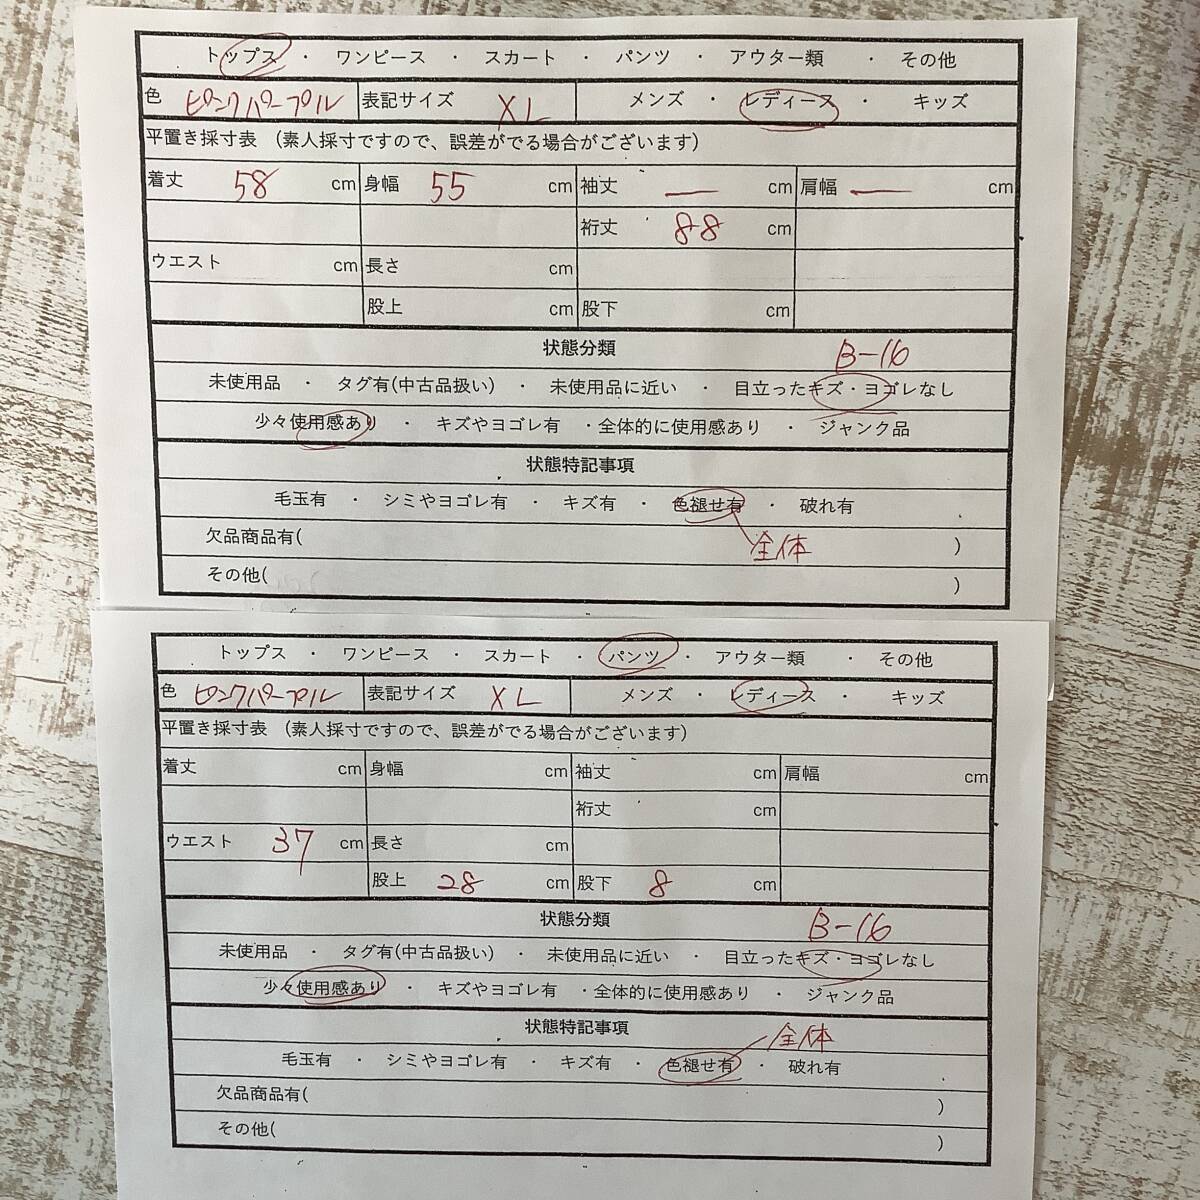 トップス ・ ワンピース ・ スカート ・ パンツ ・ アウター類 ・ その他
色 ピンクパープル 表記サイズ XL メンズ ・ レディース ・ キッズ
平置き採寸表 (素人採寸ですので、誤差がでる場合がございます)
着丈 58 cm 身幅 55 cm 袖丈 — cm 肩幅 — cm
裄丈 88 cm
ウエスト cm 長さ cm
股上 cm 股下 cm
状態分類 B-16
未使用品 ・ タグ有(中古品扱い) ・ 未使用品に近い ・ 目立ったキズ・ヨゴレなし
少々使用感あり ・ キズやヨゴレ有 ・全体的に使用感あり ・ ジャンク品
状態特記事項
毛玉有 ・ シミやヨゴレ有 ・ キズ有 ・ 色褪せ有 ・ 破れ有
欠品商品有( 全体 )
その他( )
トップス ・ ワンピース ・ スカート ・ パンツ ・ アウター類 ・ その他
色 ピンクパープル 表記サイズ XL メンズ ・ レディース ・ キッズ
平置き採寸表 (素人採寸ですので、誤差がでる場合がございます)
着丈 cm 身幅 cm 袖丈 cm 肩幅 cm
裄丈 cm
ウエスト 37 cm 長さ cm
股上 28 cm 股下 8 cm
状態分類 B-16
未使用品 ・ タグ有(中古品扱い) ・ 未使用品に近い ・ 目立ったキズ・ヨゴレなし
少々使用感あり ・ キズやヨゴレ有 ・全体的に使用感あり ・ ジャンク品
状態特記事項 全体
毛玉有 ・ シミやヨゴレ有 ・ キズ有 ・ 色褪せ有 ・ 破れ有
欠品商品有( )
その他( )